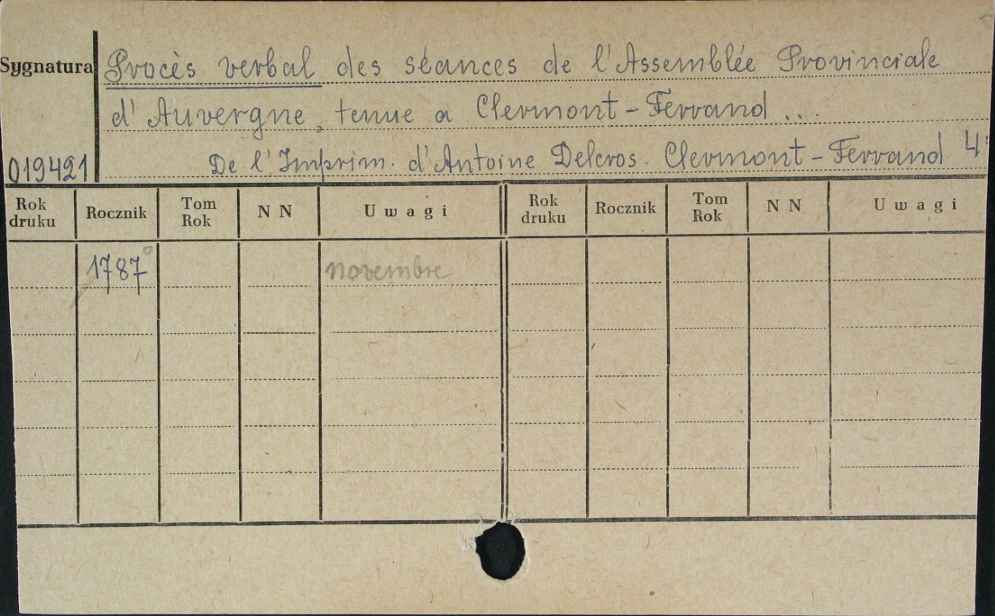 Sygnatura
Procès verbal des séances de l'Assemblée Provinciale
d'Auvergne, tenue a Clermont-Ferrand ...
De l'Imprim. d'Antoine Delcros. Clermont-Ferrand 4°
019421
Rok druku Rocznik Tom Rok N N Uwagi Rok druku Rocznik Tom Rok N N Uwagi
1787 novembre